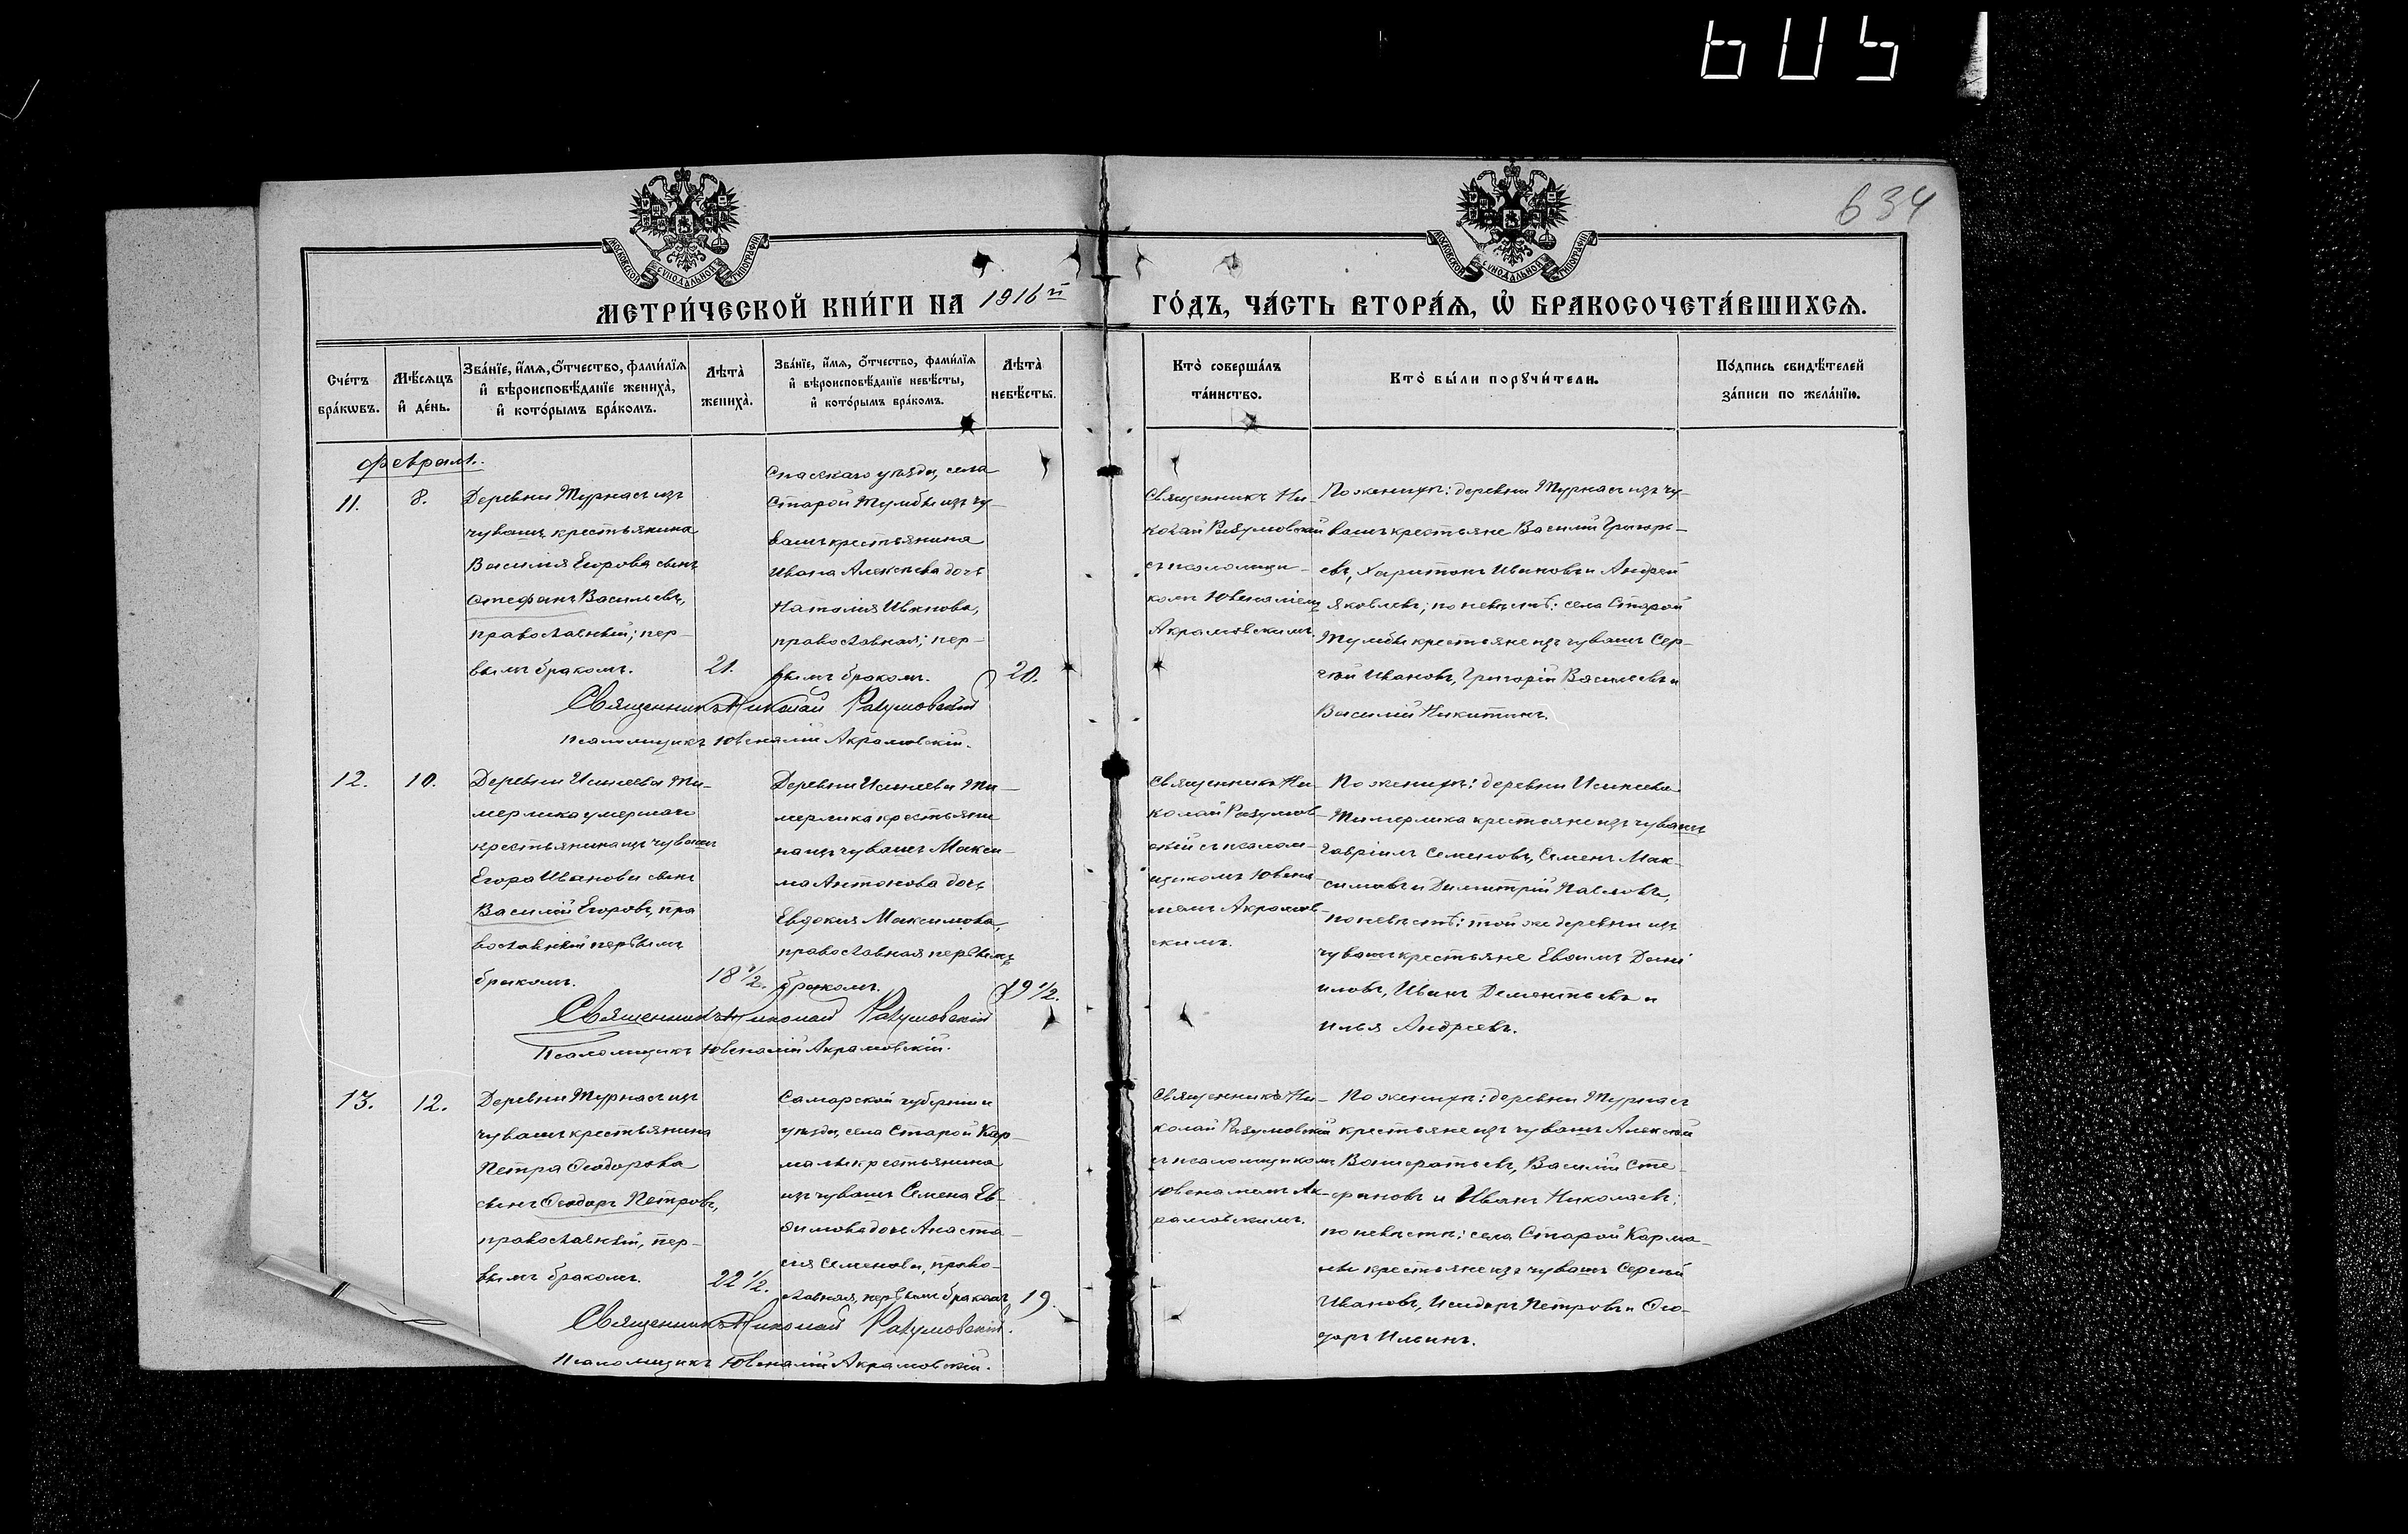 634
МОСКОВСКОЙ СѴНОДАЛЬНОЙ ТИПОГРАФІИ
МОСКОВСКОЙ СѴНОДАЛЬНОЙ ТИПОГРАФІИ
МЕТРИ́ЧЕСКОЙ КНИ́ГИ НА 1916 й ГО́ДЪ, ЧА́СТЬ ВТОРА́Я, Ѡ҆ БРАКОСОЧЕТА́ВШИХСЯ.
Сче́тъ бра́кѡвъ.
Мѣ́сяцъ и҆ де́нь.
Зва́нїе, и҆́мя, ѻ҆́тчество, фами́лїя
и҆ вѣроисповѣ́данїе жениха̀,
и҆ кото́рымъ бра́комъ.
Лѣта̀ жениха̀.
Зва́нїе, и҆́мя, ѻ҆́тчество, фами́лїя
и҆ вѣроисповѣ́данїе невѣ́сты,
и҆ кото́рымъ бра́комъ.
Лѣта̀ невѣ́сты.
Кто̀ соверша́лъ
та́инство.
Кто̀ бы́ли порꙋчи́тели.
По́дпись свидѣ́телей
за́писи по жела́нїю.
Февраль.
11.
8.
Деревни Турнасъ изъ
чувашъ крестьянина
Василія Егорова сынъ
Стефанъ Васильевъ,
православный; пер-
вымъ бракомъ.
21.
Спасскаго уѣзда, села
Старой Тумбы изъ чу-
вашъ крестьянина
Ивана Алексѣева дочь
Наталія Иванова,
православная; пер-
вымъ бракомъ.
20.
Священникъ Ни-
колай Разумовскій
съ псаломщи-
комъ Ювеналіемъ
Акрамовскимъ.
По женихѣ: деревни Турнасъ изъ чу-
вашъ крестьяне Василій Григорь-
евъ, Харитонъ Ивановъ и Андрей
Яковлевъ; по невѣстѣ: села Старой
Тумбы крестьяне изъ чувашъ Сер-
гѣй Ивановъ, Григорій Васильевъ и
Василій Никитинъ.
Священникъ Николай Разумовскій
Псаломщикъ Ювеналій Акрамовскій.
12.
10.
Деревни Исинеева Ти-
мерлика умершаго
крестьянина изъ чувашъ
Егора Иванова сынъ
Василій Егоровъ, пра
вославный первымъ
бракомъ.
18 1/2.
Деревни Исинеева Ти-
мерлика крестьяни
на изъ чувашъ Макси-
ма Антонова дочь
Евдокия Максимова,
православная первымъ
бракомъ.
19 1/2.
Священникъ Ни-
колай Разумов-
скій съ псалом-
щикомъ Ювена-
ліемъ Акрамов-
скимъ.
По женихѣ: деревни Исинеева
Тимерлика крестьяне изъ чувашъ
Гавріилъ Семеновъ, Семенъ Мак-
симовъ и Димитрій Павловъ,
по невѣстѣ: той же деревни изъ
чувашъ крестьяне Евѳимъ Дани
иловъ, Иванъ Дементьевъ и
Илья Андреевъ.
Священникъ Николай Разумовскій
Псаломщикъ Ювеналій Акрамовскій.
13.
12.
Деревни Турнасъ изъ
чувашъ крестьянина
Петра Ѳеодорова
сынъ Ѳеодоръ Петровъ,
православный, пер-
вымъ бракомъ.
22 1/2.
Самарской губерніи и
уѣзда, села Старой Кар-
малы крестьянина
изъ чувашъ Семена Ев-
ѳимова дочь Анаста-
сія Семенова, право-
славная, первымъ бракомъ
19.
Священникъ Ни-
колай Разумовскій
съ псаломщикомъ
Ювеналіемъ Ак-
рамовскимъ.
По женихѣ: деревни Турнасъ
крестьяне изъ чувашъ Алексѣй
Василій Сте-
фановъ и Иванъ Николаевъ;
по невѣстѣ: села Старой Карма-
лы крестьяне изъ чувашъ Сергѣй
Ивановъ, Исидоръ Петровъ и Ѳео-
доръ Ильинъ.
Священникъ Николай Разумовскій.
Псаломщикъ Ювеналій Акрамовскій.